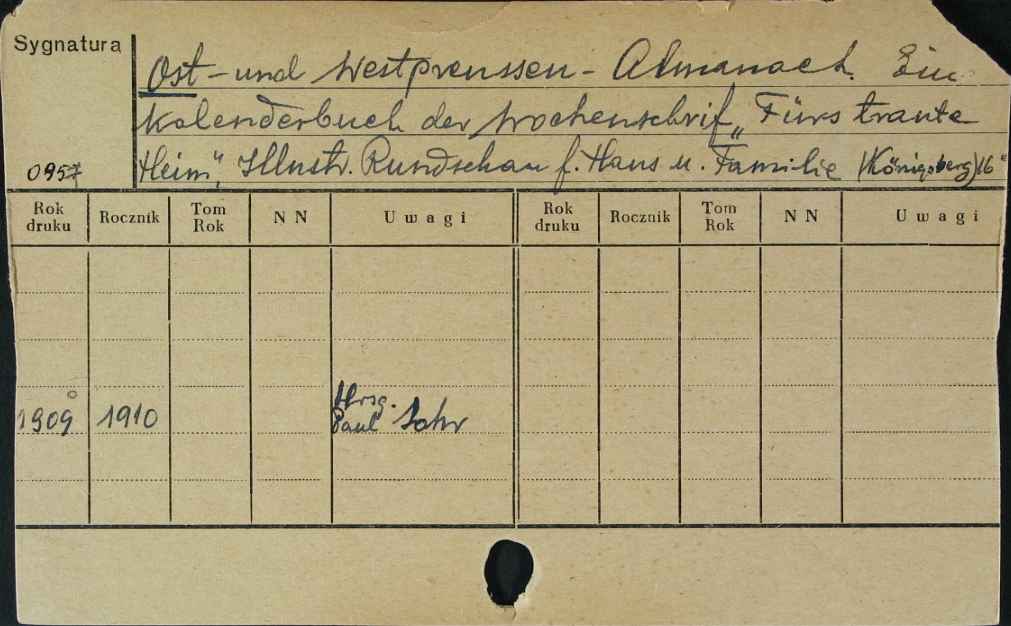 Sygnatura
Ost- und Westpreussen- Almanach. Ein
Kalenderbuch der Wochenschrif „Fürs traute
Heim", Illustr. Rundschau f. Haus u. Familie (Königsberg) 16°
0957
Rok druku Rocznik Tom Rok NN Uwagi Rok druku Rocznik Tom Rok NN Uwagi
1909 1910 Hrsg.
Paul Sohr